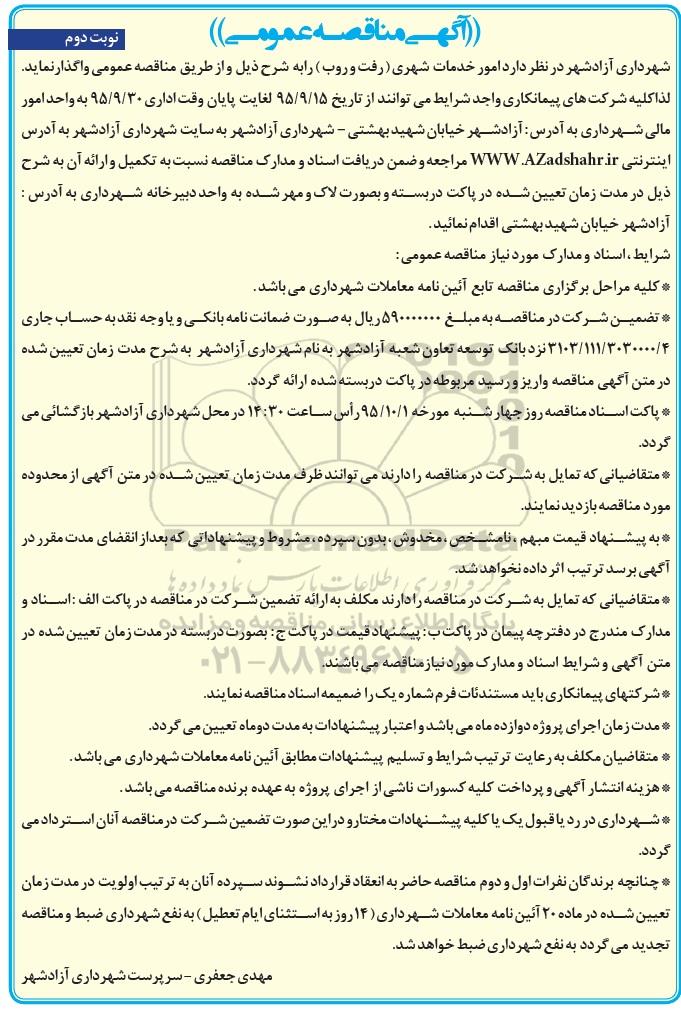 ((آگهی مناقصه عمومی))
نوبت دوم
شهرداری آزادشهر در نظر دارد امور خدمات شهری ( رفت و روب ) را به شرح ذیل و از طریق مناقصه عمومی واگذار نماید.
لذا کلیه شرکت های پیمانکاری واجد شرایط می توانند از تاریخ ۹۵/۹/۱۵ لغایت پایان وقت اداری ۹۵/۹/۳۰ به واحد امور
مالی شهرداری به آدرس : آزادشهر خیابان شهید بهشتی - شهرداری آزادشهر به سایت شهرداری آزادشهر به آدرس
اینترنتی WWW.AZadshahr.ir مراجعه و ضمن دریافت اسناد و مدارک مناقصه نسبت به تکمیل و ارائه آن به شرح
ذیل در مدت زمان تعیین شده در پاکت دربسته و بصورت لاک و مهر شده به واحد دبیرخانه شهرداری به آدرس :
آزادشهر خیابان شهید بهشتی اقدام نمائید.
شرایط ، اسناد و مدارک مورد نیاز مناقصه عمومی :
* کلیه مراحل برگزاری مناقصه تابع آئین نامه معاملات شهرداری می باشد.
* تضمین شرکت در مناقصه به مبلغ ۵۹۰۰۰۰۰۰۰ ریال به صورت ضمانت نامه بانکی و یا وجه نقد به حساب جاری
۳۱۰۳/۱۱۱/۳۰۳۰۰۰۰/۴ نزد بانک توسعه تعاون شعبه آزادشهر به نام شهرداری آزادشهر به شرح مدت زمان تعیین شده
در متن آگهی مناقصه واریز و رسید مربوطه در پاکت دربسته شده ارائه گردد.
* پاکت اسناد مناقصه روز چهارشنبه مورخه ۹۵/۱۰/۱ رأس ساعت ۱۴:۳۰ در محل شهرداری آزادشهر بازگشائی می
گردد.
* متقاضیانی که تمایل به شرکت در مناقصه را دارند می توانند ظرف مدت زمان تعیین شده در متن آگهی از محدوده
مورد مناقصه بازدید نمایند.
* به پیشنهاد قیمت مبهم ، نامشخص ، مخدوش ، بدون سپرده ، مشروط و پیشنهاداتی که بعد از انقضای مدت مقرر در
آگهی برسد ترتیب اثر داده نخواهد شد.
* متقاضیانی که تمایل به شرکت در مناقصه را دارند مکلف به ارائه تضمین شرکت در مناقصه در پاکت الف : اسناد و
مدارک مندرج در دفترچه پیمان در پاکت ب : پیشنهاد قیمت در پاکت ج : بصورت دربسته در مدت زمان تعیین شده در
متن آگهی و شرایط اسناد و مدارک مورد نیاز مناقصه می باشند.
* شرکتهای پیمانکاری باید مستندئات فرم شماره یک را ضمیمه اسناد مناقصه نمایند.
* مدت زمان اجرای پروژه دوازده ماه می باشد و اعتبار پیشنهادات به مدت دو ماه تعیین می گردد.
* متقاضیان مکلف به رعایت ترتیب شرایط و تسلیم پیشنهادات مطابق آئین نامه معاملات شهرداری می باشد.
* هزینه انتشار آگهی و پرداخت کلیه کسورات ناشی از اجرای پروژه به عهده برنده مناقصه می باشد.
* شهرداری در رد یا قبول یک یا کلیه پیشنهادات مختار و در این صورت تضمین شرکت در مناقصه آنان استرداد می
گردد.
* چنانچه برندگان نفرات اول و دوم مناقصه حاضر به انعقاد قرارداد نشوند سپرده آنان به ترتیب اولویت در مدت زمان
تعیین شده در ماده ۲۰ آئین نامه معاملات شهرداری ( ۱۴ روز به استثنای ایام تعطیل ) به نفع شهرداری ضبط و مناقصه
تجدید می گردد به نفع شهرداری ضبط خواهد شد.
مهدی جعفری - سرپرست شهرداری آزادشهر
ParsNamadData
مرکز فرآوری اطلاعات پارس نماد داده ها
پایگاه اطلاع رسانی مناقصه و مزایده
۰۲۱-۸۸۳۴۹۶۷۰-۵